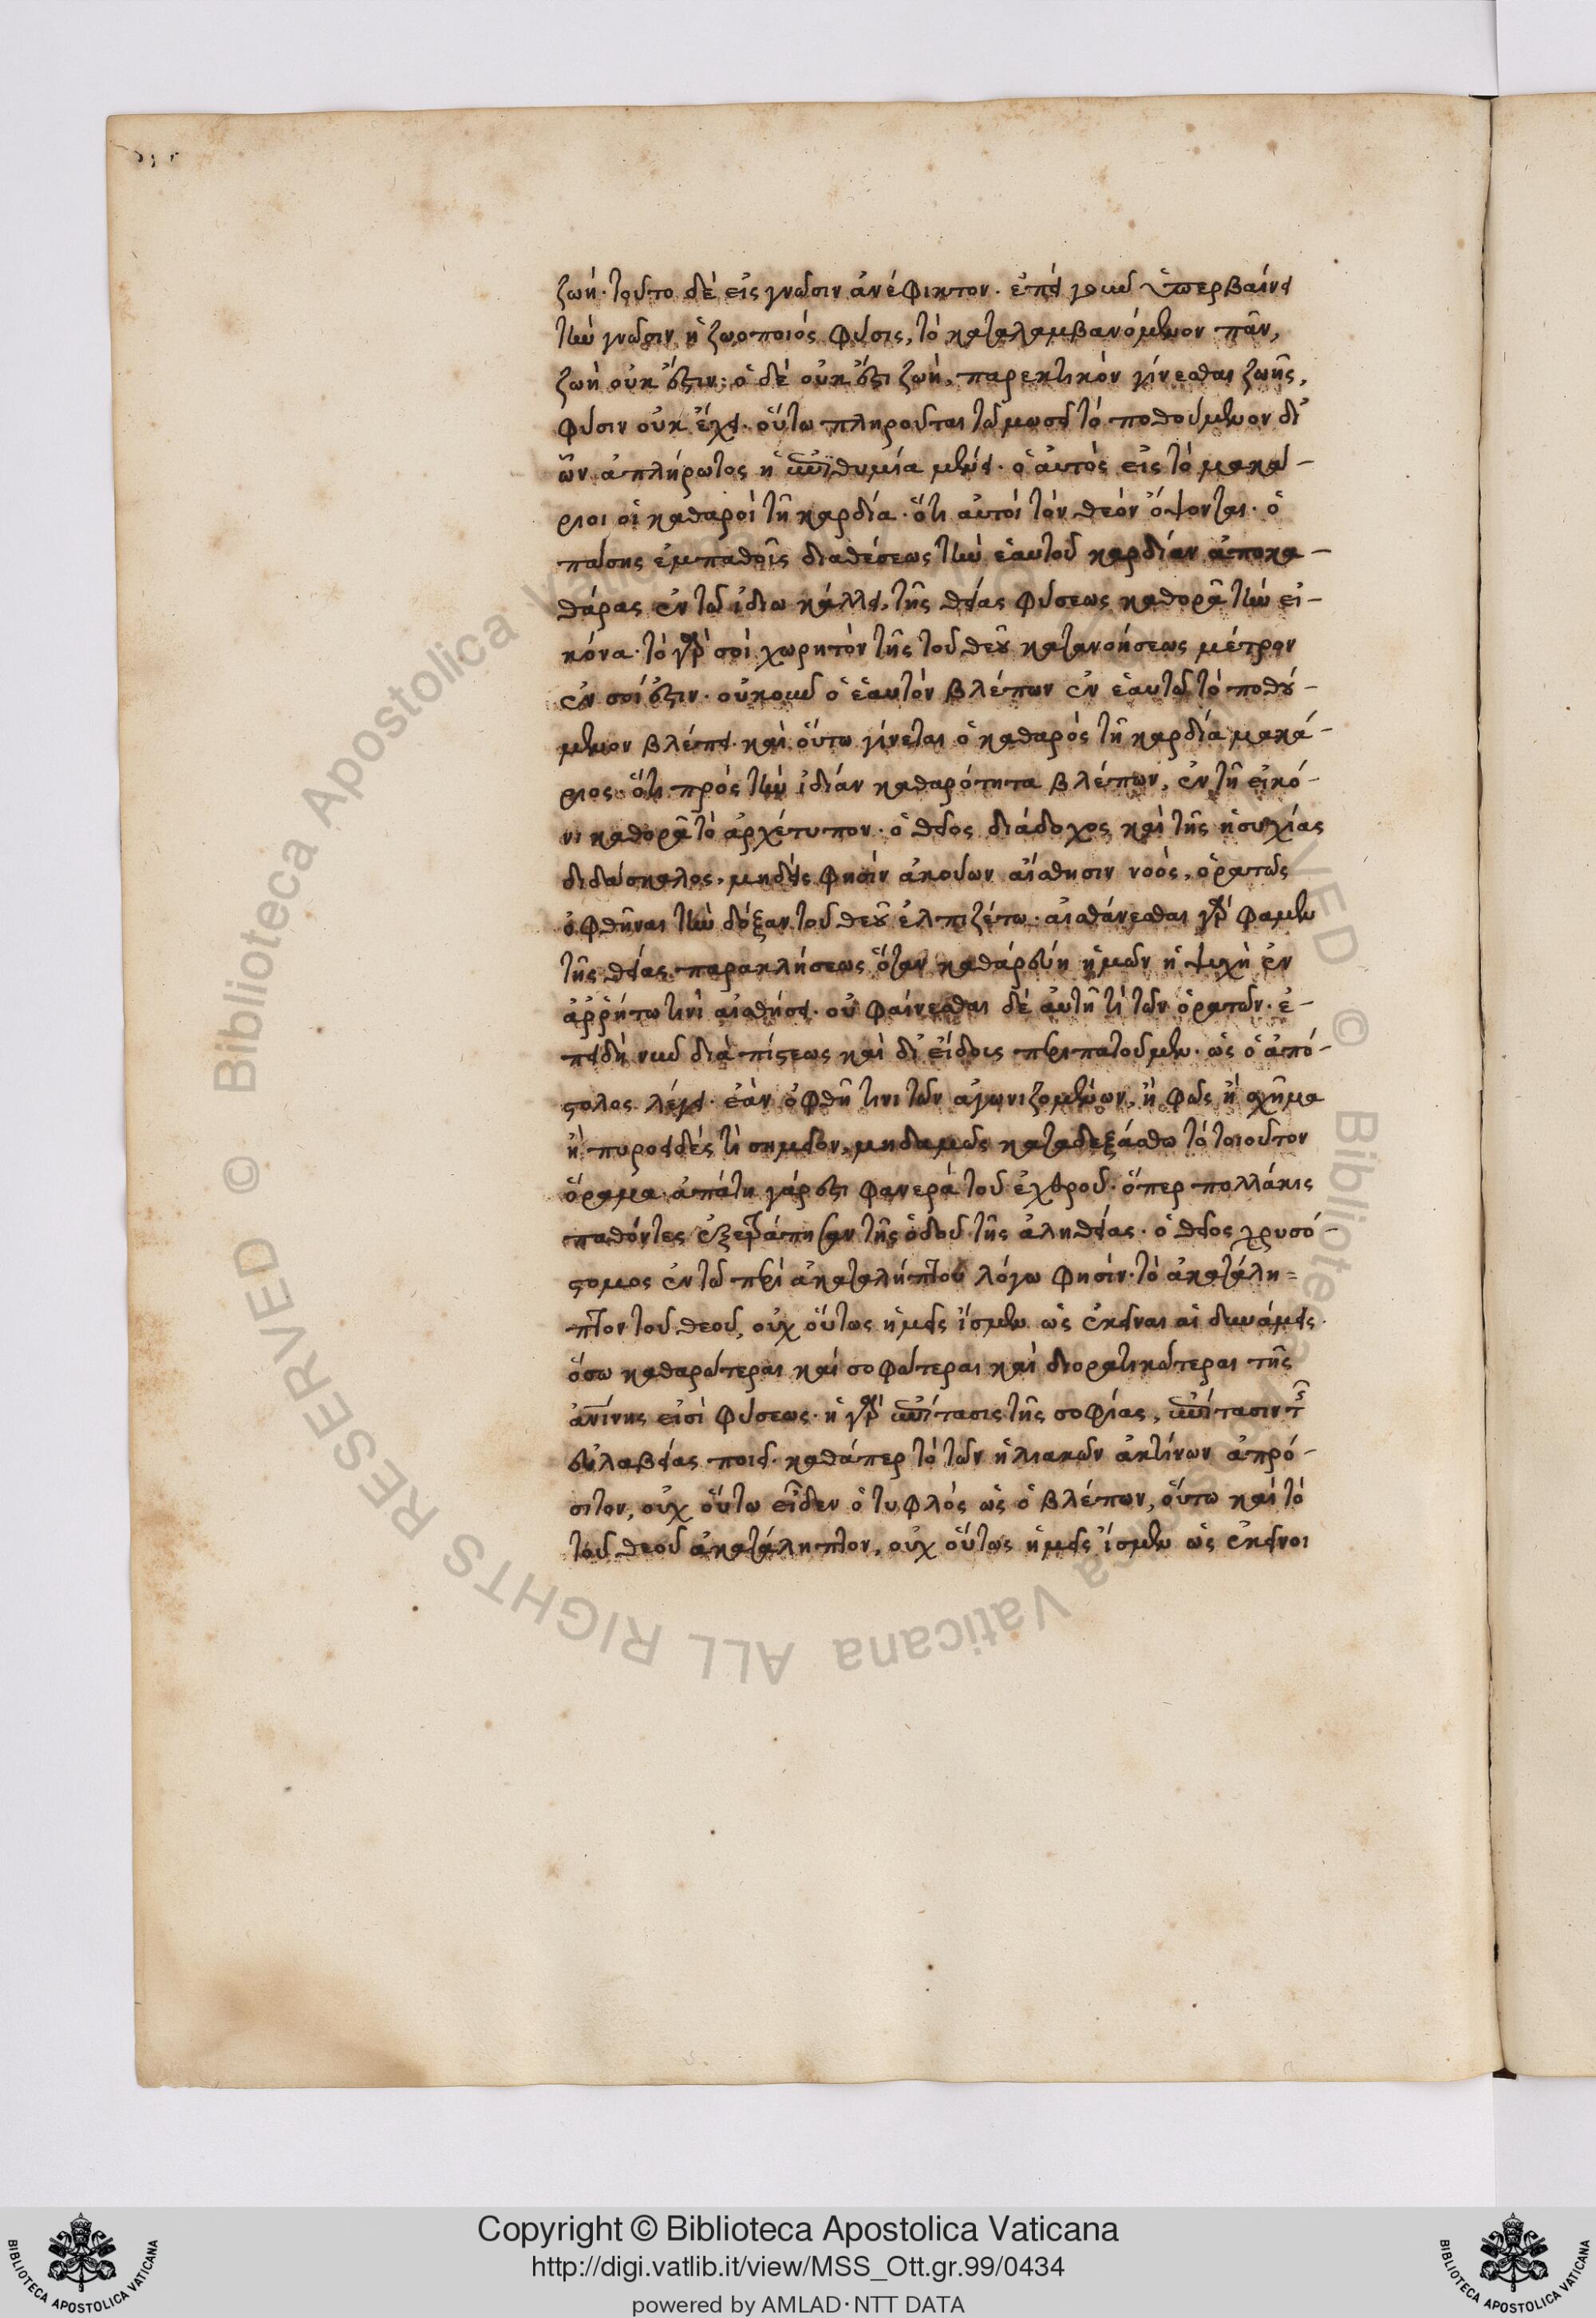 ζωή· τοῦτο δὲ εἰς γνῶσιν ἀνέφικτον· ἐπεὶ γοῦν ὑπερβαίνει
τὴν γνῶσιν ἡ ζωοποιός φύσις, τὸ καταλαμβανόμενον πᾶν,
ζωὴ οὐκ ἔστιν· ὁ δὲ οὐκ ἔστι ζωὴ, παρεκτικὸν γίνεσθαι ζωῆς,
φύσιν οὐκ ἔχει· οὕτω πληροῦται τῶ μωσεῖ τὸ ποθούμενον δι'
ὧν ἀπλήρωτος ἡ ἐπιθυμία μένει· ὁ αὐτὸς εἰς τὸ μακά-
ριοι οἱ καθαροὶ τῆ καρδία· ὅτι αὐτοὶ τὸν θεὸν ὄψονται· ὁ
πάσης ἐμπαθοῦς διαθέσεως τὴν ἑαυτοῦ καρδίαν ἀποκα-
θάρας ἐν τῶ ἰδίω κάλλει, τῆς θείας φύσεως καθορᾶ τὴν εἰ-
κόνα· τὸ γὰρ σοὶ χωρητὸν τῆς τοῦ θεοῦ κατανοήσεως μέτρον
ἐν σοί ἐστιν· οὐκοῦν ὁ ἑαυτὸν βλέπων ἐν ἑαυτῶ τὸ ποθού-
μενον βλέπει· καὶ οὕτω γίνεται ὁ καθαρὸς τῆ καρδία μακά-
ριος· ὅτι πρὸς τὴν ἰδίαν καθαρότητα βλέπων, ἐν τῆ εἰκό-
νι καθορᾶ τὸ ἀρχέτυπον· ὁ θεῖος διάδοχος καὶ τῆς ἡσυχίας
διδάσκαλος, μηδεὶς φησὶν ἀκούων αἴσθησιν νοὸς, ὁρατῶς
ὀφθῆναι τὴν δόξαν τοῦ θεοῦ ἐλπιζέτω· αἰσθάνεσθαι γὰρ φαμὲν
τῆς θείας παρακλήσεως ὅταν καθαρεύη ἡμῶν ἡ ψυχὴ ἐν
ἀῤῥήτω τινὶ αἰσθήσει· οὐ φαίνεσθαι δὲ αὐτῆ τὶ τῶν ὁρατῶν· ἐ-
πειδὴ νῦν διὰ πίστεως καὶ δι' εἴδους περιπατοῦμεν· ὡς ὁ ἀπό-
στολος λέγει· ἐὰν ὀφθῆ τινι τῶν ἀγωνιζομένων, ἢ φῶς ἢ σχῆμα
ἢ πυροειδές τὶ σημεῖον, μηδαμῶς καταδεξάσθω τὸ τοιοῦτον
ὅραμα· ἀπάτη γάρ ἐστι φανερὰ τοῦ ἐχθροῦ· ὅπερ πολλάκις
παθόντες ἐξετράπησαν τῆς ὁδοῦ τῆς ἀληθείας· ὁ θεῖος χρυσό-
στομος ἐν τῶ περὶ ἀκαταλήπτου λόγω φησίν· τὸ ἀκατάλη-
πτον τοῦ θεοῦ, οὐχ οὕτως ἡμεῖς ἴσμεν ὡς ἐκεῖναι αἱ δυνάμεις·
ὅσω καθαρώτεραι καὶ σοφώτεραι καὶ διορατικώτεραι τῆς
ἀνίνης εἰσὶ φύσεως· ἡ γὰρ ἐπίτασις τῆς σοφίας, ἐπίτασιν τῆς
εὐλαβείας ποιεῖ· καθάπερ τὸ τῶν ἡλιακῶν ἀκτίνων ἀπρό-
σιτον, οὐχ οὕτω εἶδεν ὁ τυφλὸς ὡς ὁ βλέπων, οὕτω καὶ τὸ
τοῦ θεοῦ ἀκατάληπτον, οὐχ οὕτως ἡμεῖς ἴσμεν ὡς ἐκεῖνοι
Copyright © Biblioteca Apostolica Vaticana
http://digi.vatlib.it/view/MSS_Ott.gr.99/0434
powered by AMLAD·NTT DATA